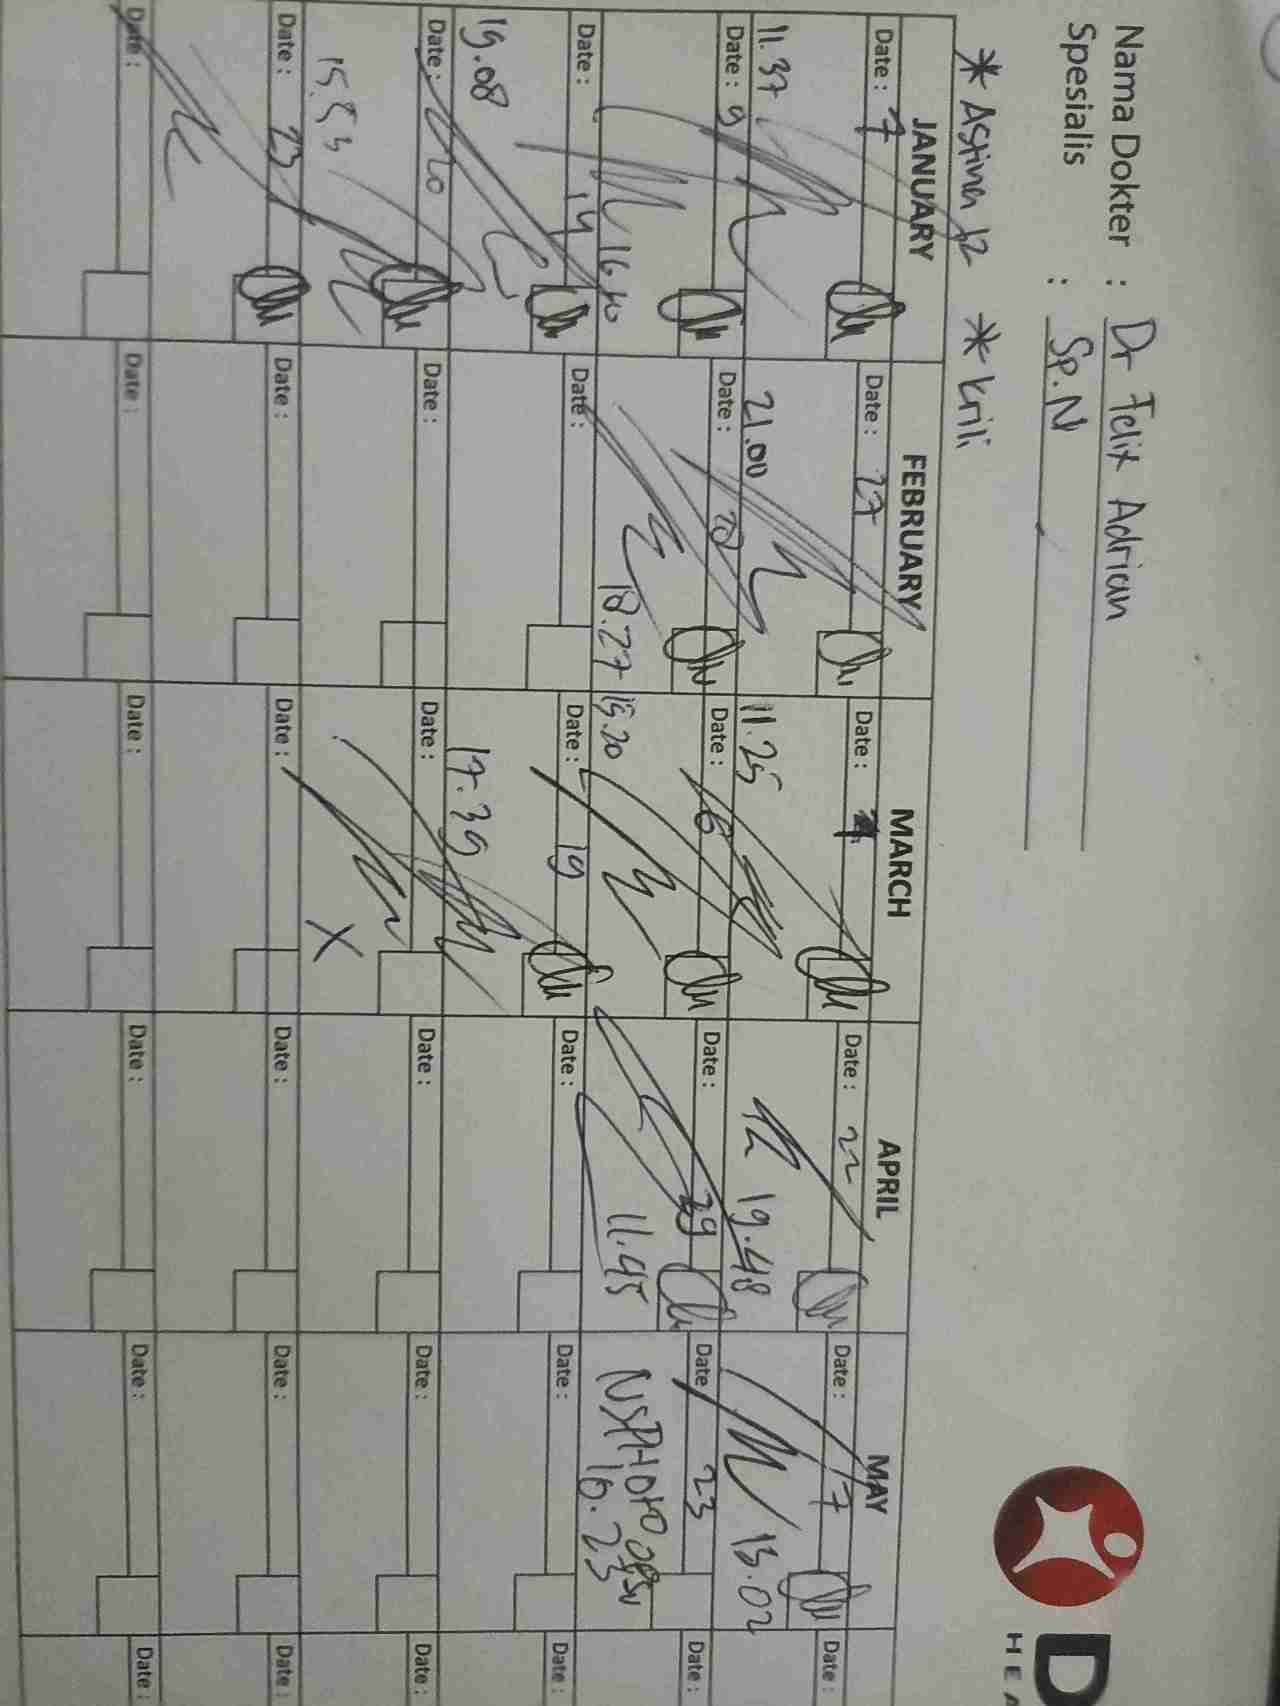 Nama Dokter : Dr Felix Adrian
Spesialis : Sp.N
* Astina 12 * Krili
D
HEA
JANUARY FEBRUARY MARCH APRIL MAY
Date : 7 Date : 27 Date : Date : 22 Date : 7 Date :
11.37 21.00 11.25 19.48 13.02
Date : 9 Date : 28 Date : 6 Date : 29 Date 23 Date :
16.40 18.27 15.20 11.45 16.23
Date : 14 Date : Date : 19 Date : Date : Date :
19.08 17.39
Date : 20 Date : Date : Date : Date : Date :
15.53 X
Date : 23 Date : Date : Date : Date : Date :
Date : Date : Date : Date : Date : Date :